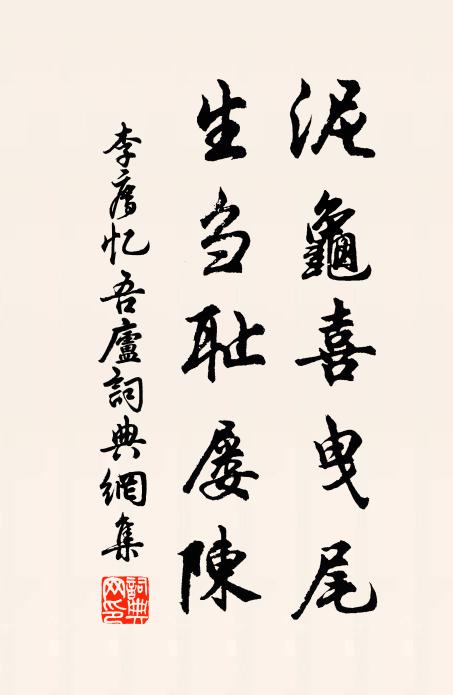 泥龜喜曳尾
生芻耻屡陳
李廌忆吾廬詞典網集
詞典网印